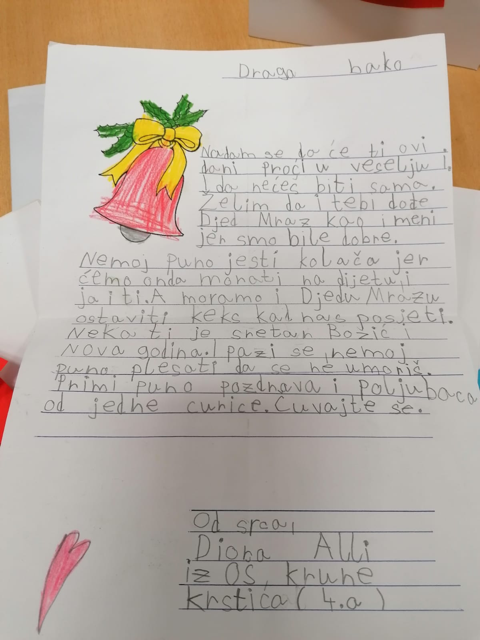 Draga bako
Nadam se da će ti ovi
dani proći u veselju i
da nećeš biti sama.
Želim da i tebi dođe
Djed Mraz kao i meni
jer smo bile dobre.
Nemoj puno jesti kolača jer
ćemo onda morati na dijetu i
ja i ti. A moramo i Djedu Mrazu
ostaviti keks kad nas posjeti.
Neka ti je sretan Božić i
Nova godina. I pazi se, nemoj
puno plesati da se ne umoriš.
Primi puno pozdrava i poljubaca
od jedne curice. Čuvajte se.
Od srca,
Diora Alli
iz OŠ, krune
krstića (4.a)